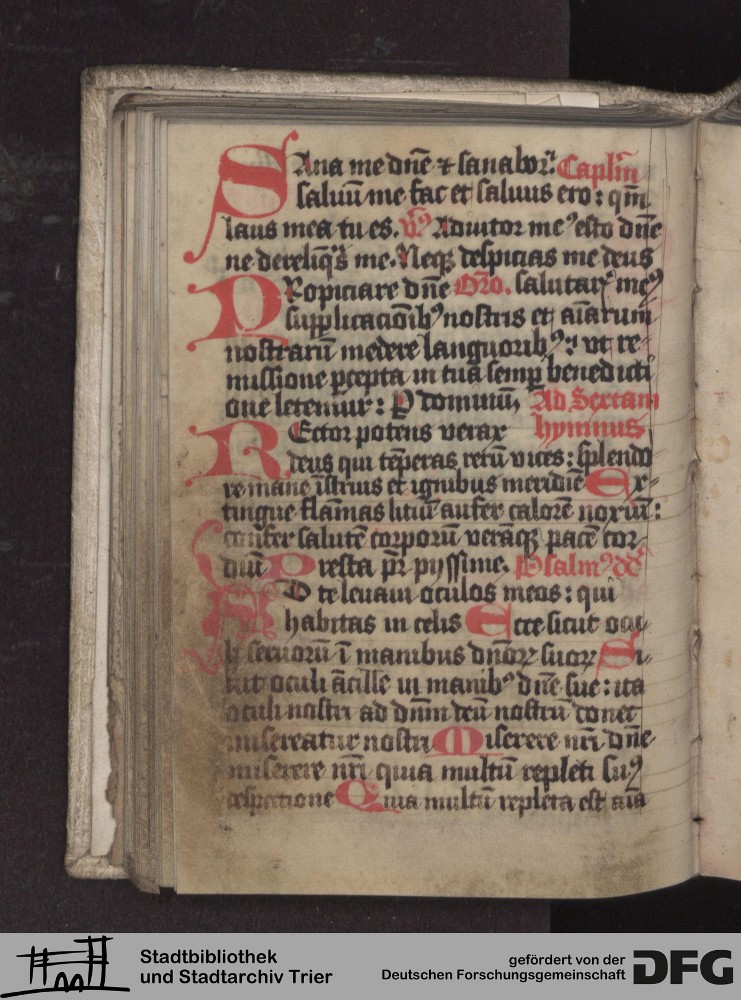 SAna me dn̄e ⁊ sanabor. Caplm̄
saluū me fac et saluus ero : qm̄
laus mea tu es. v᷒ Adiutor meꝰ esto dn̄e
ne dereliq̄s me. Neqꝫ despicias me deus
PRopiciare dn̄e Oro. salutarꝭ meꝰ
supplicacōibꝰ nostris et aīarum
nostrarū medere languoribꝰ : ut re-
missione ꝑcepta in tua semꝑ benedicti
one letemur : P domiuū, Ad Sextam
REctor potens verax hymnus
deus qui tēperas rerū vices : splendo
re mane īstruis et ignibus meridiē Ex-
tingue flāmas litiū aufer calorē noxiū :
confer salutē corporū verāqꝫ pacē cor-
diū Presta pr̄ pyssime. Psalmꝰ dd
AD te leuaui oculos meos : qui
habitas in celis Ecce sicut ocu-
li seruorū ī manibus dn̄oꝝ suoꝝ Si-
cut oculi ācille in manibꝰ dn̄e sue : ita
oculi nostri ad dn̄m deū nostrū donec
misereatur nostri Miserere nr̄i dn̄e
miserere nr̄i quia multū repleti suꝰ
despectione Quia multū repleta est aīa
Stadtbibliothek
und Stadtarchiv Trier
gefördert von der
Deutschen Forschungsgemeinschaft
DFG